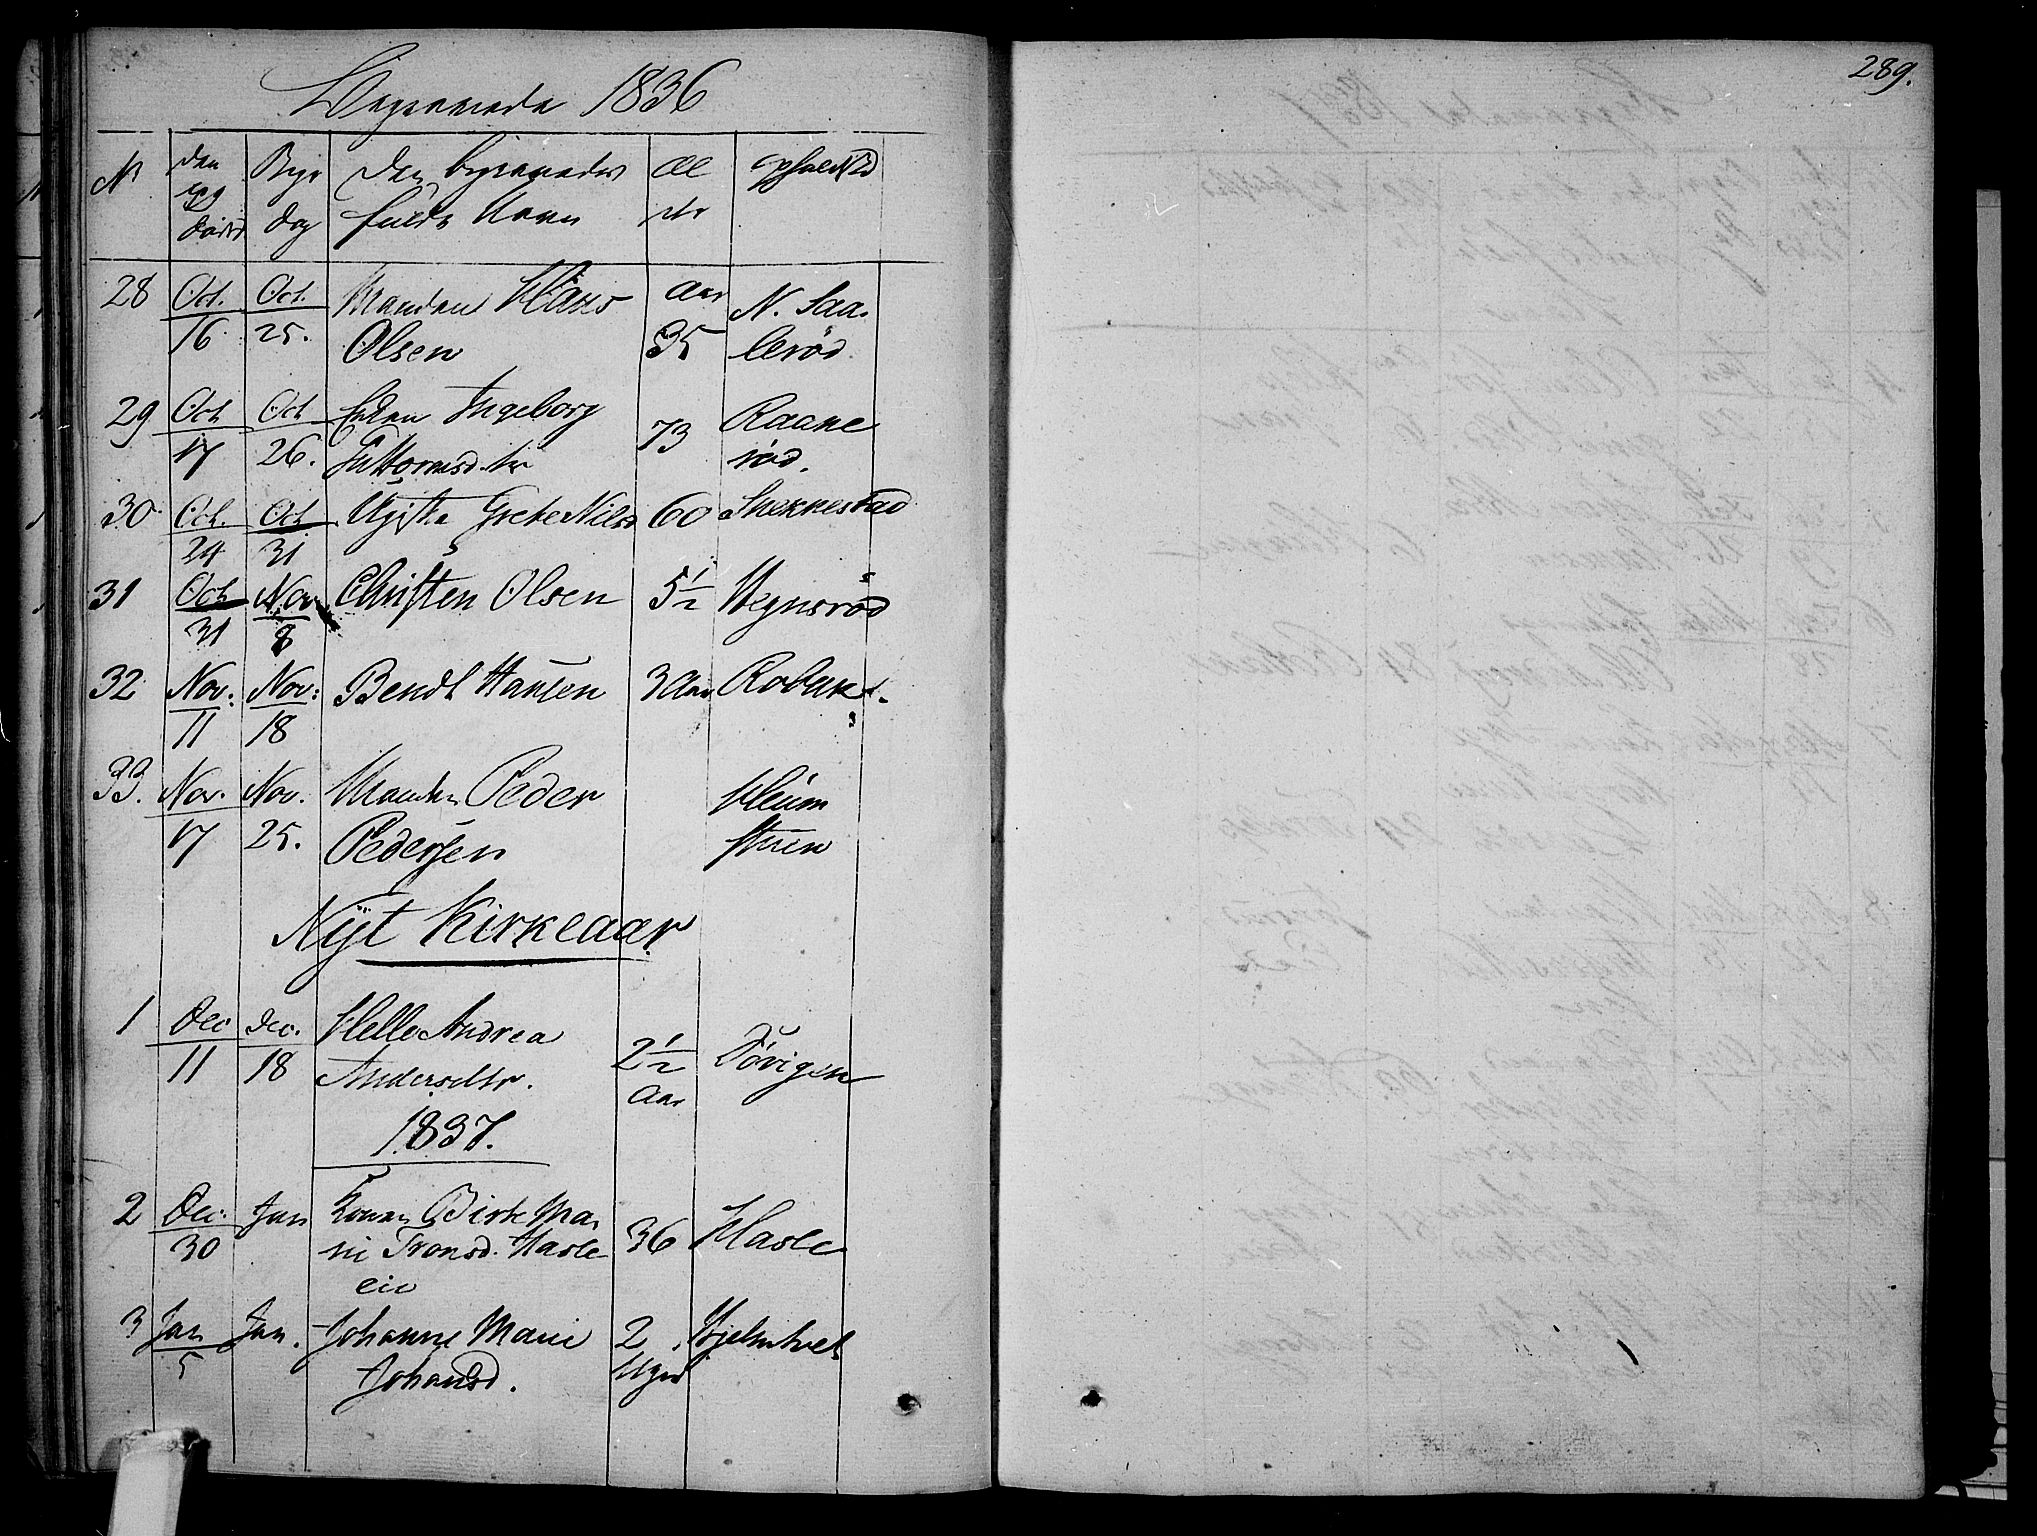 289.
Begravede 1836
No
den er døde
Begr dag
den begravedes fulde Navn
Al der
opholdsted
28 Oct. 16 Oct. 25. Manden Hans Olsen Aar 35 N. Saa lerød
29 Oct 17 Oct 26. Enken Ingeborg Guttormsd.tr 73 Raane rød.
30 Oct. 24 Oct 31 Ugifte Grete Nilsd 60 Snekkestad
31 Oct 31 Nov 8 Christen Olsen 5½ Hegnsrød
32 Nov. 11 Nov: 18 Bendt Hansen 3 Aar Robak
33. Nov. 17 Nov. 25. Manden Peder Pedersen Heum stuen
Nÿt Kirkeaar
1 Dec 11 Dec. 18 Helle Andrea Andersdtr. 2½ Aar Døvigen
1837.
2 Dec: 30 Jan Konen Birte Ma rie Tronsd. Hasle eie 36 Hasle
3 Jan 5 Jan. Johanne Marie Johansd. 2 Uger Hjelmtvet